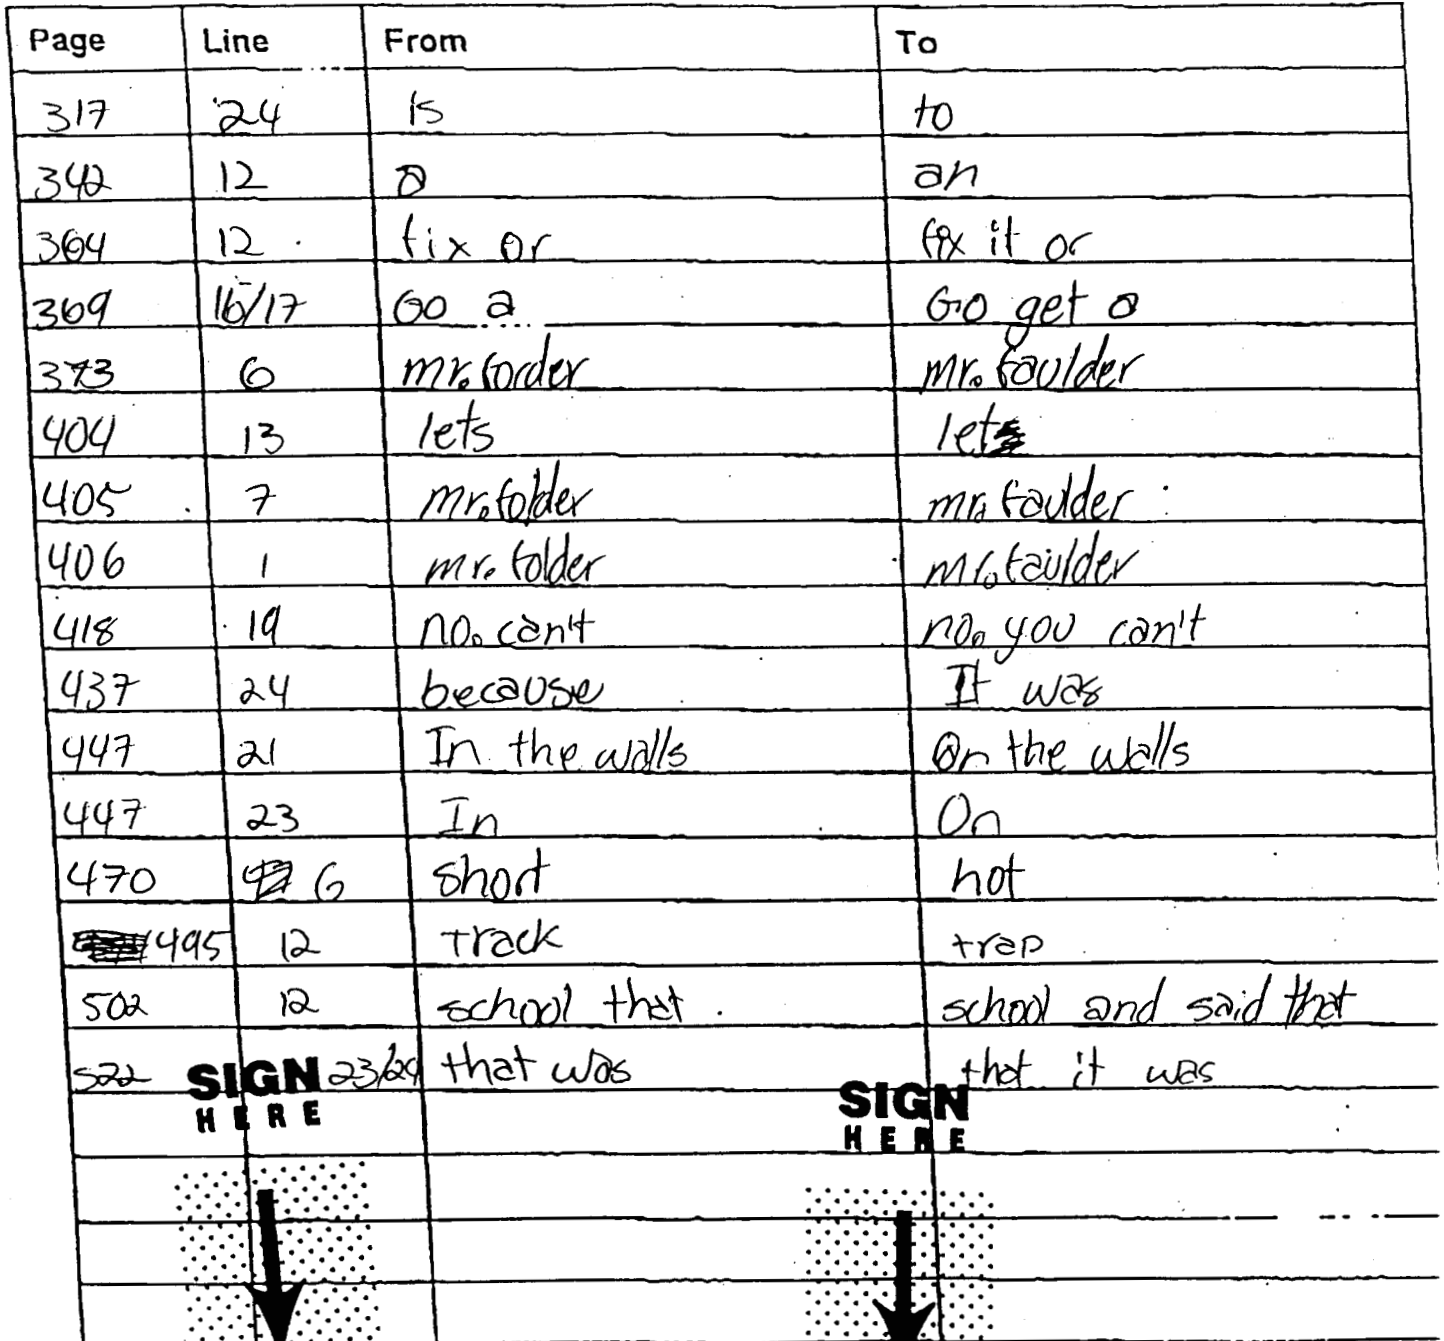 Page Line From To
317 24 is to
342 12 a an
364 12 fix or fix it or
369 16/17 Go a Go get a
373 6 mr. forder mr. faulder
404 13 lets let
405 7 mr. folder mr. faulder
406 1 mr. folder mr. faulder
418 19 no. can't no. you can't
437 24 because It was
447 21 In the walls On the walls
447 23 In On
470 6 short hot
495 12 track trap
502 12 school that school and said that
522 23/24 that was that it was
SIGN SIGN
HERE HERE